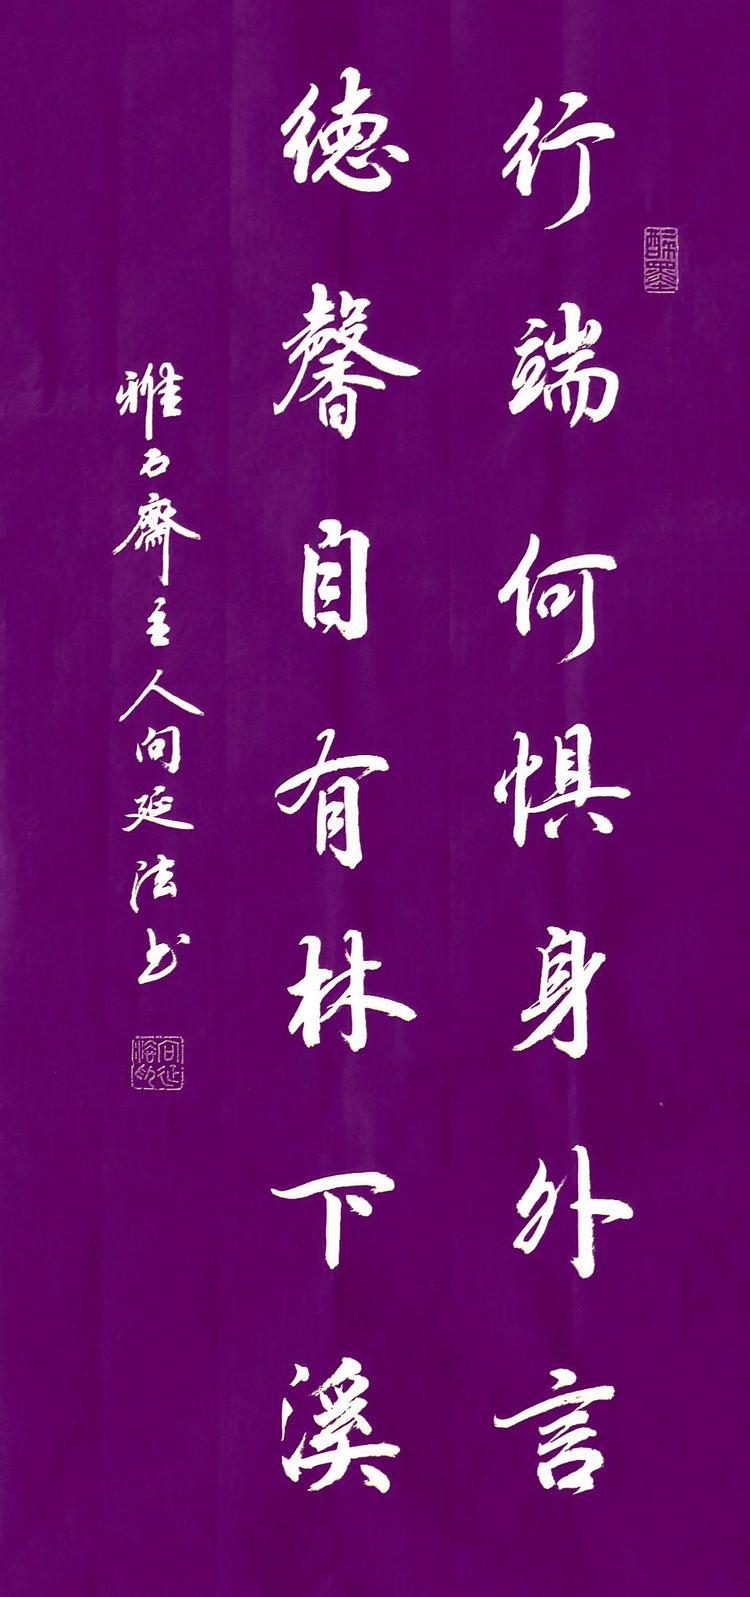 行端何惧身外言
德馨自有林下溪
雅石斋主人向延法书